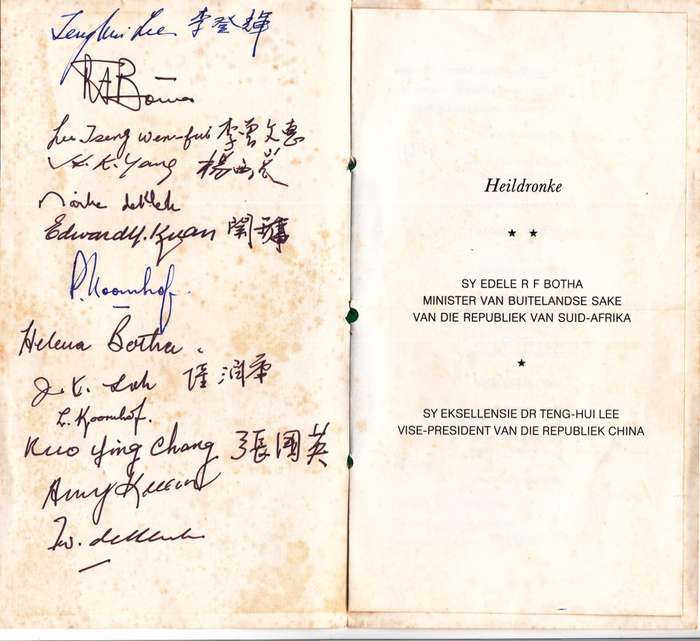 Teng-hui Lee 李登輝
R F Botha
Lee Tseng Wen-fui 李曾文惠
H. K. Yang 楊西崑
Marike de Klerk
Edward Y. Kuan 關鏞
P. Koornhof.
Helena Botha.
J. K. Loh 陸潤康
L. Koornhof.
Kuo Ying Chang 張國英
Amy Kuan
F.W. de Klerk
Heildronke
★ ★
SY EDELE R F BOTHA
MINISTER VAN BUITELANDSE SAKE
VAN DIE REPUBLIEK VAN SUID-AFRIKA
★
SY EKSELLENSIE DR TENG-HUI LEE
VISE-PRESIDENT VAN DIE REPUBLIEK CHINA